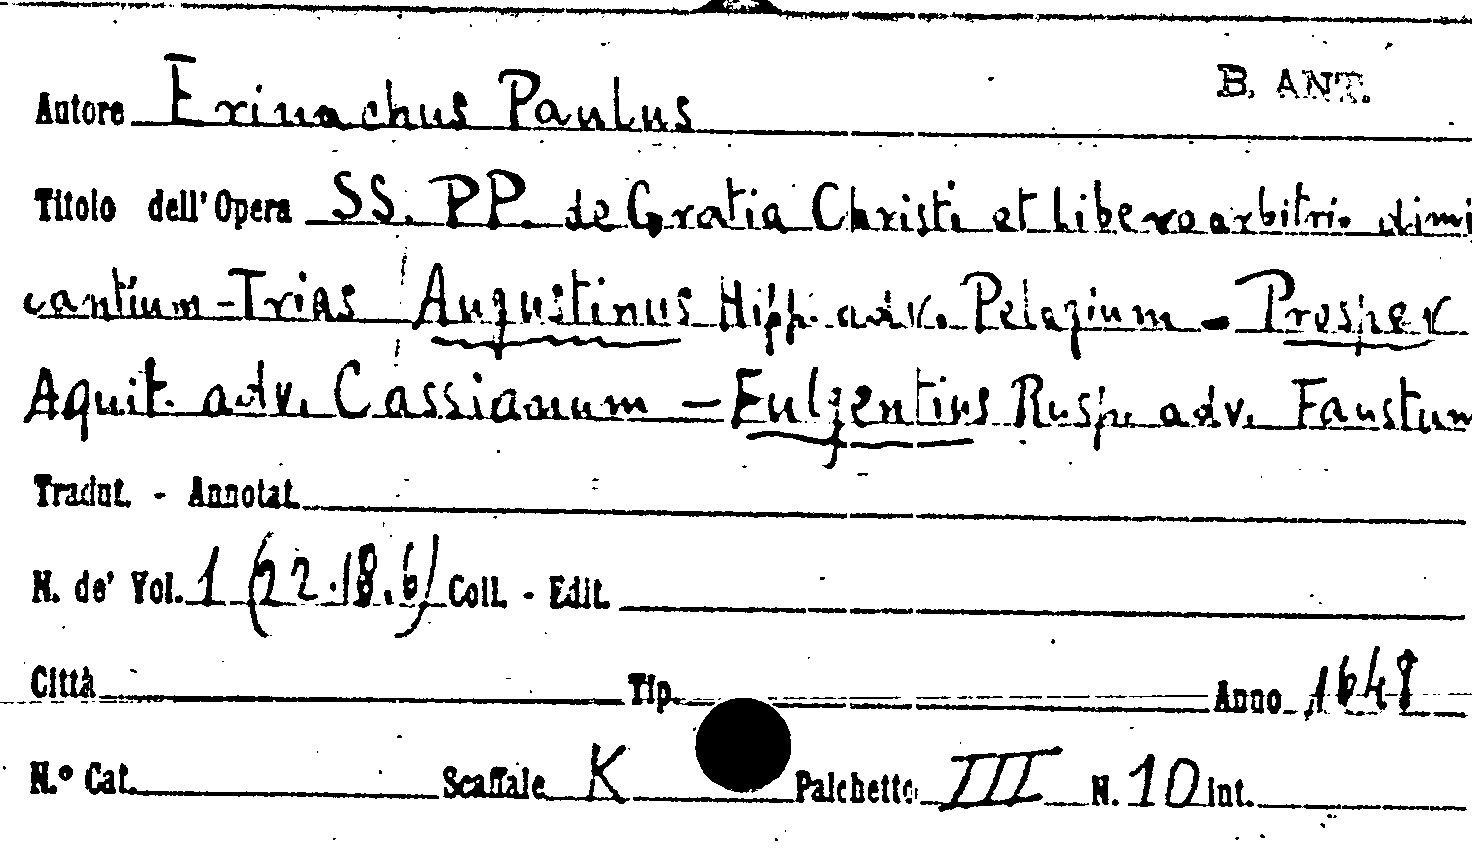 B. ANT.
Autore Erinachus Paulus
Titolo dell' Opera SS. PP. de Gratia Christi et libero arbitrio dimi
cantium - Trias Augustinus Hipp. adv. Pelagium - Prosper
Aquit. adv. Cassianum - Fulgentius Rusp. adv. Faustum
Tradut. - Annotat.
N. de' Vol. 1 (22.18.6) Coll. - Edit.
Città Tip. Anno 1648
N.° Cat. Scaffale K Palchetto III N. 10 int.